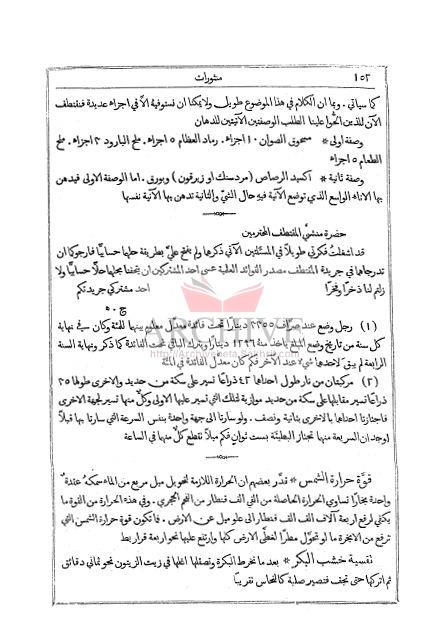 ١٥٢ منثورات
كما سياتي . وبما ان الكلام في هذا الموضوع طويل ولا يمكنا ان نستوفيه الا في اجزاء عديدة فنقتطف
الآن للذين الحوا علينا الطلب الوصفتين الآتيتين للدهان
وصفة اولى * مسحوق الصوان ١٠ اجزاء . رماد العظام ٥ اجزاء . ملح البارود ٣ اجزاء . ملح
الطعام ٥ اجزاء
وصفة ثانية * اكسيد الرصاص (مردسنك او زيرقون) وبورق . اما الوصفة الاولى فيدهن
بها الاناء الواسع الذي توضع الآنية فيه حال الشيّ والثانية تدهن بها الآنية نفسها
حضرة منشئي المقتطف المحترمين
قد اشغلت فكرتي طويلاً في المسئلتين الآتي ذكرها ولم يفتح عليّ بطريقة حلها حسابيا فارجوكما ان
تدرجاها في جريدة المقتطف مصدر الفوائد العلمية عسى احد المشتركين ان يتحفنا بحلها حلا حسابيا ولا
زلتم لنا ذخرا وفخرا احد مشتركي جريدتكم
ج . ۵
ARCHIVE
http://Archivebeta.Sakhrit.com
(١) رجل وضع عند صراف ٢٣٥٥ دينارا تحت فائدة معدل معلوم بينهما للمئة وكان في نهاية
كل سنة من تاريخ وضع المبلغ ياخذ منه ١٢٩٦ دينارا ويترك الباقي تحت الفائدة كما ذكر ونهاية السنة
الرابعة لم يبق لاحدها شيء عند الآخر فكم كان معدل الفائدة في المئة
(٢) مركبتان من نار طول احداها ٤٢ ذراعا تسير على سكة من حديد والاخرى طولها ٣٥
ذراعا تسير مقابلها على سكة من حديد موازية لتلك التي تسير عليها الاولى وكل منها تسير لجهة الاخرى
فاجتازتا احداها بالاخرى بثانية ونصف . ولو سارتا الى جهة واحدة بنفس السرعة التي سارتا بها قبلا
لوجد ان السريعة منها تجتاز البطيئة بست ثوانٍ فكم ميلا تقطع كل منها في الساعة
قوة حرارة الشمس * قدّر بعضهم ان الحرارة اللازمة لتحويل ميل مربع من الماء سمكه عقدة
واحدة بخارا تساوي الحرارة الحاصلة من الفي الف قنطار من الفحم الحجري . وفي هذه الحرارة من القوة ما
يكفي لرفع اربعة آلاف الف الف قنطار الى علو ميل عن الارض . فا تكون قوة حرارة الشمس التي
ترفع من الابخرة ما لو تحوّل مطرا لغطى الارض كلها وارتفع عليها نحو اربعة قراريط
نفسية خشب البكر * بعد ما نخرط البكرة ونصقلها اغلها في زيت الزيتون نحو ثماني دقائق
ثم اتركها حتى تجف فتصير صلبة كالنحاس تقريبا